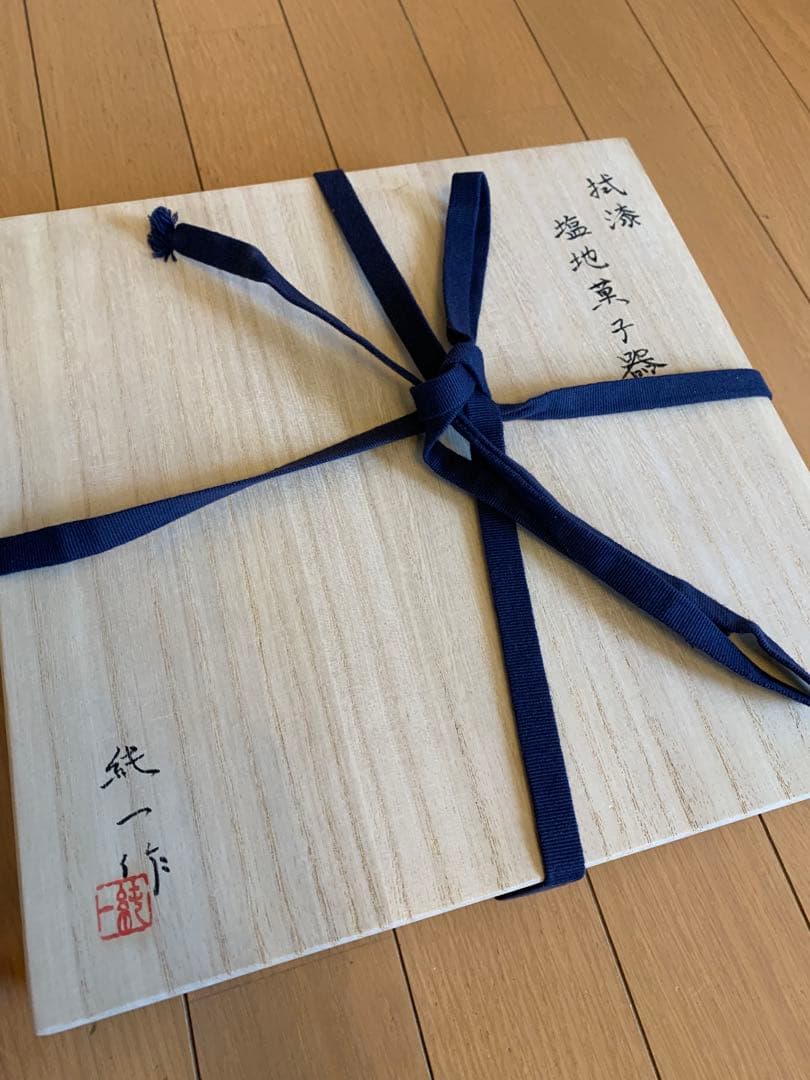 拭漆
塩地菓子器
純一作